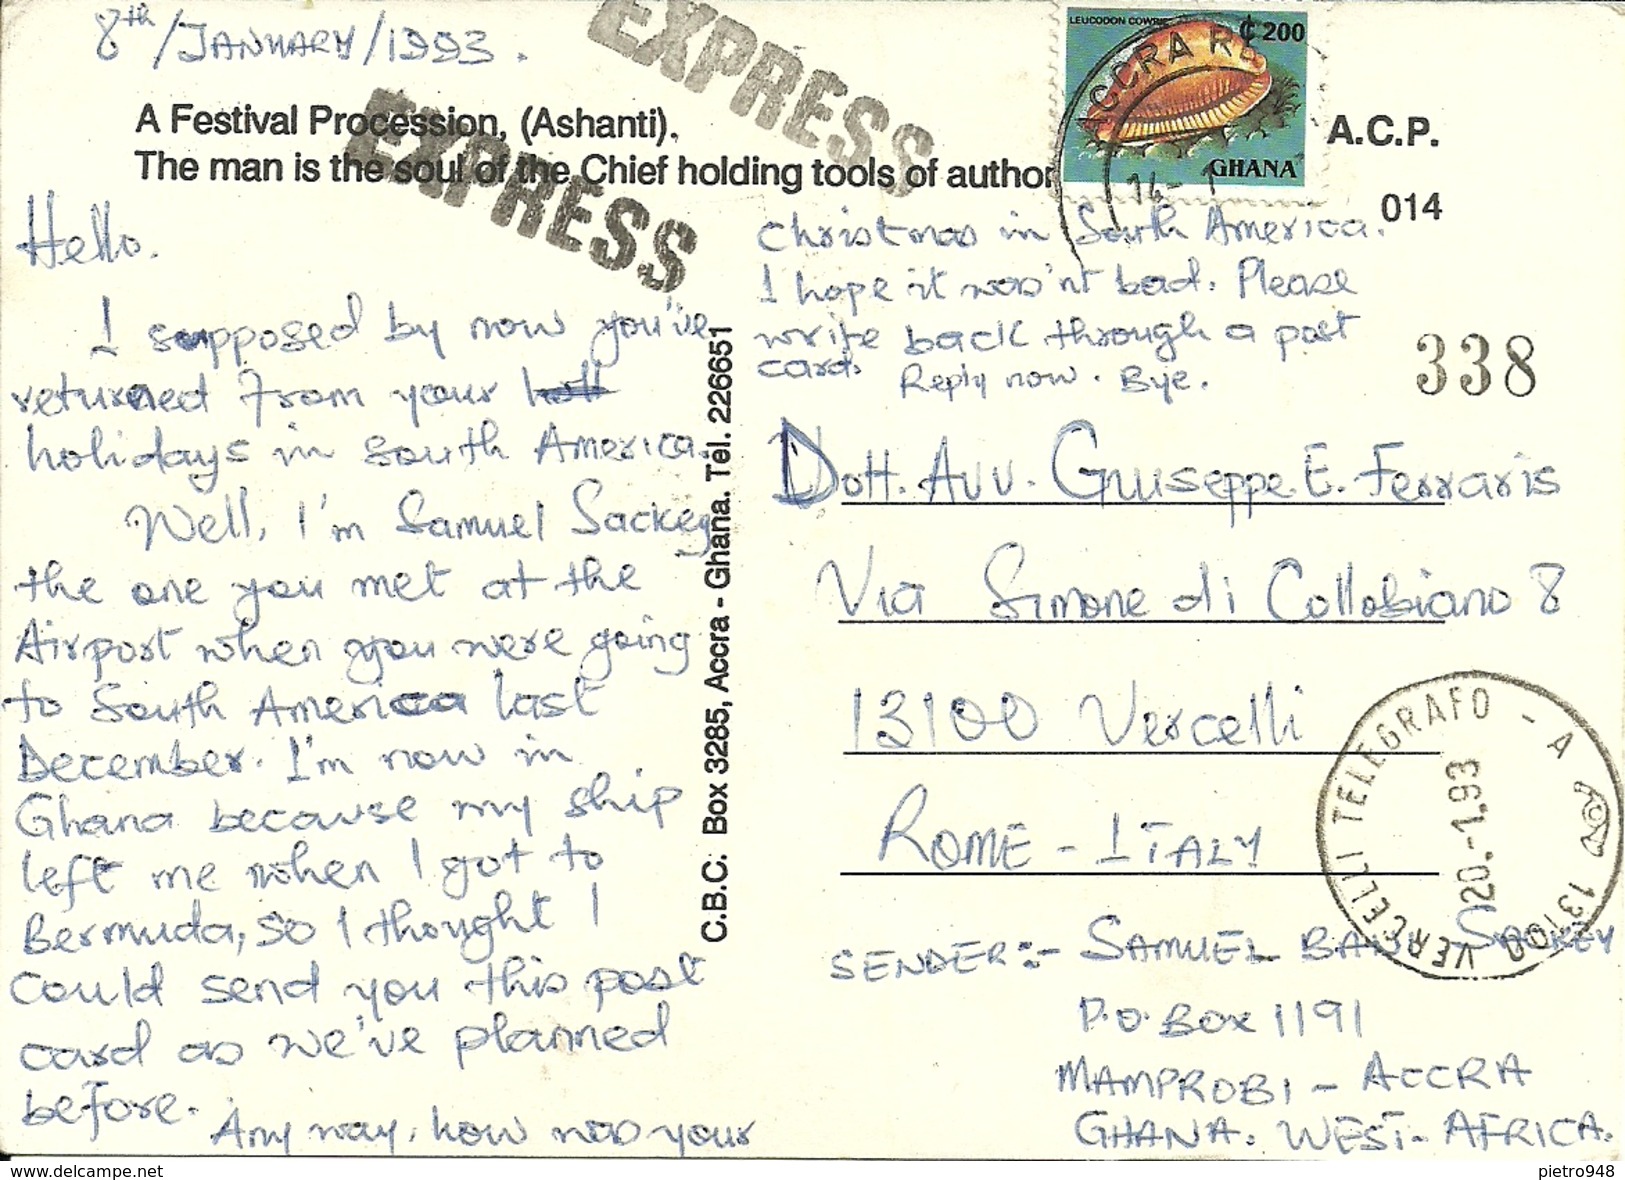 8th/JANUARY/1993.
EXPRESS
EXPRESS
LEUCODON COWRIE
₵200
ACCRA
GHANA
14-1
A Festival Procession, (Ashanti).
The man is the soul of the Chief holding tools of author
A.C.P.
014
Hello.
I supposed by now you've
returned from your
holidays in South America.
Well, I'm Samuel Sackey
the one you met at the
Airport when you were going
to South America last
December. I'm now in
Ghana because my ship
left me when I got to
Bermuda, so I thought I
could send you this post
card as we've planned
before.
Any way, how was your
Christmas in South America.
I hope it was'nt bad. Please
write back through a post
card. Reply now. Bye.
C.B.C. Box 3285, Accra - Ghana. Tel. 226651
338
Dott. Avv. Giuseppe E. Ferraris
Via Simone di Collobiano 8
13100 Vercelli
ROME - ITALY
VERCELLI TELEGRAFO - A
20.-1.93
13100
SENDER:- SAMUEL SACKEY
P.O. BOX 1191
MAMPROBI - ACCRA
GHANA. WEST-AFRICA.
pietro948